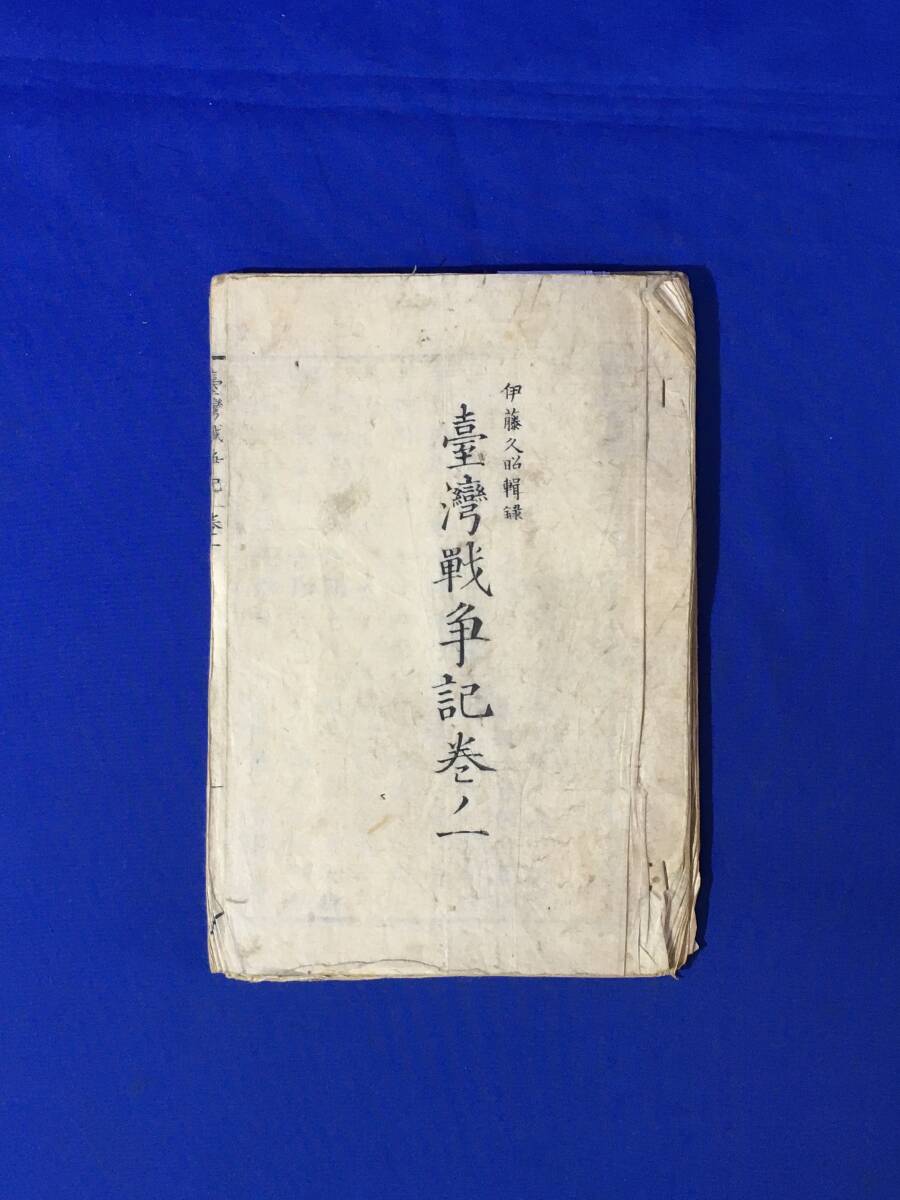 伊藤久昭輯録
臺灣戦争記巻ノ一
臺灣戦争記 巻一